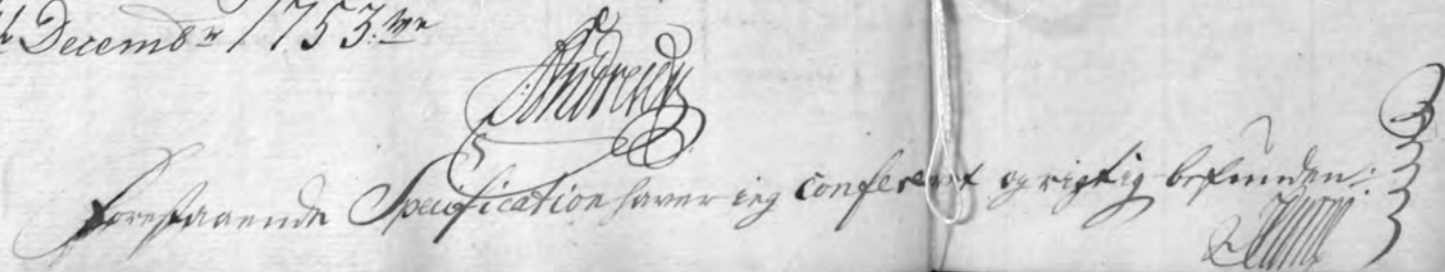 Decembr 1753.
Forestaaende Specification haver ieg confereret og rigtig befunden: